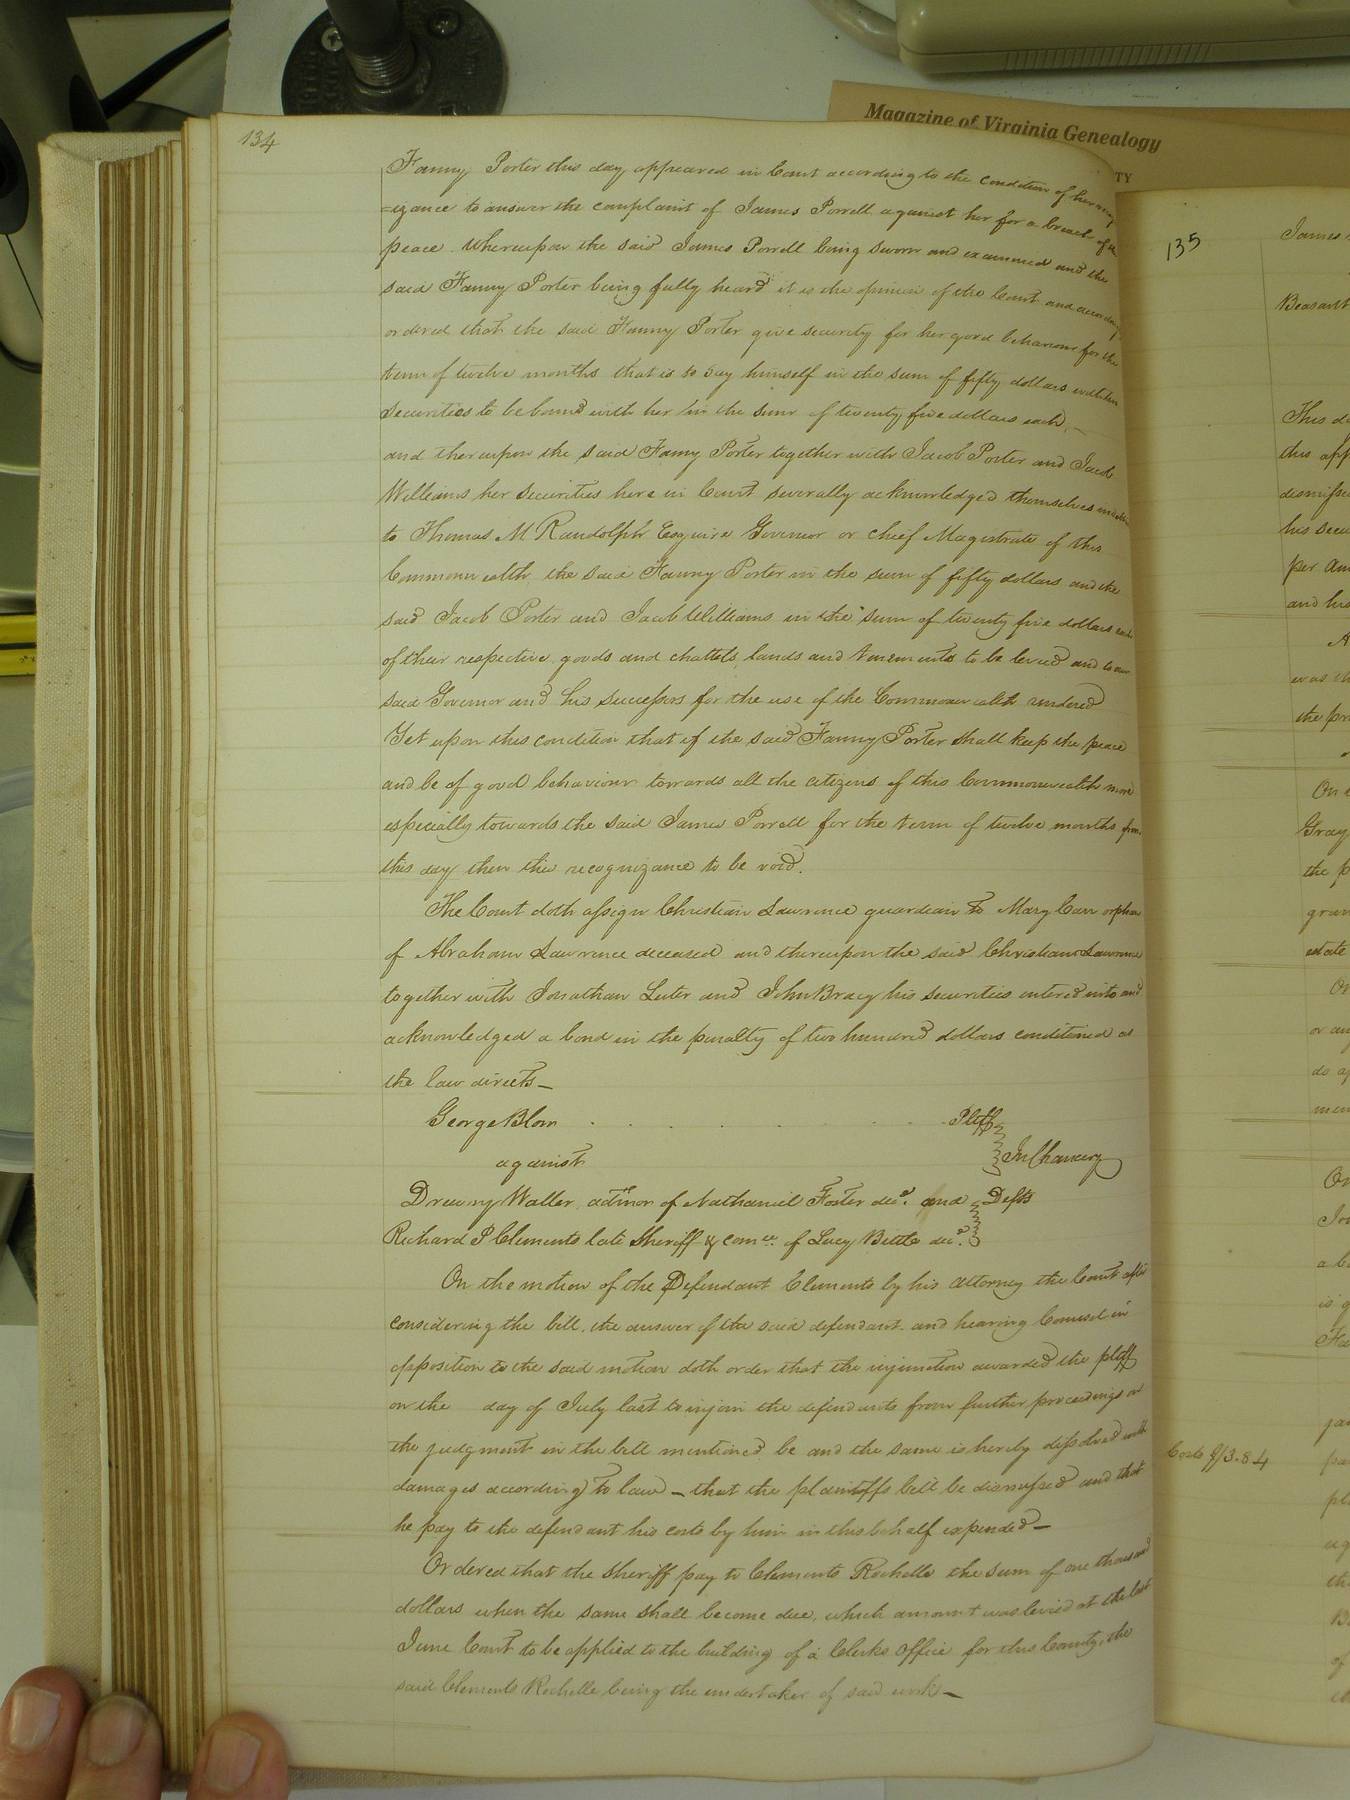 Magazine of Virginia Genealogy
TY
134
Fanny Porter this day appeared in Court according to the condition of her
=izance to answer the complaint of James Porrell against her for a breach of
peace. Whereupon the said James Porrell being sworn and examined and the
said Fanny Porter being fully heard it is the opinion of the Court and
ordered that the said Fanny Porter give security for her good behaviour for the
term of twelve months that is to say himself in the sum of fifty dollars with
securities to be bound with her in the sum of twenty five dollars each, —
and thereupon the said Fanny Porter together with Jacob Porter and Jacob
Williams her securities here in Court severally acknowledged themselves
to Thomas M Randolph Esquire Governor or chief Magistrate of this
Commonwealth the said Fanny Porter in the sum of fifty dollars and the
said Jacob Porter and Jacob Williams in the sum of twenty five dollars each
of their respective goods and chattels, lands and tenements to be levied and to our
said Governor and his successors for the use of the Commonwealth rendered
Yet upon this condition that if the said Fanny Porter shall keep the peace
and be of good behaviour towards all the citizens of this Commonwealth more
especially towards the said James Porrell for the term of twelve months from
this day then this recognizance to be void.
The Court doth assign Christian Lawrence guardian to Mary Carr orphan
of Abraham Lawrence deceased and thereupon the said Christian Lawrence
together with Jonathan Luter and John Bracy his securities entered into and
acknowledged a bond in the penalty of two hundred dollars conditioned as
the law directs —
George Blow . . . . . . . Pltff
against In Chancery
Drewry Waller, admor of Nathaniel Foster decd. and Defts
Richard P Clements late Sheriff & comee. of Lucy Bittle decd.
On the motion of the Defendant Clements by his attorney the Court after
considering the bill, the answer of the said defendant and hearing Counsel in
opposition to the said motion doth order that the injunction awarded the pltff
on the day of July last to injoin the defendants from further proceedings on
the judgment in the bill mentioned be and the same is hereby dissolved with
damages according to law — that the plaintiffs bill be dismissed and that
he pay to the defendant his costs by him in this behalf expended —
Ordered that the Sheriff pay to Clements Rochelle the sum of one thousand
dollars when the same shall become due, which amount was levied at the last
June Court to be applied to the building of a Clerks office for this County, the
said Clements Rochelle being the undertaker of said work —
135
James
Beasant
This d
this app
dismissed
his secu
per
and his
was th
the pr
On
Gray
the p
gran
estate
On
or
do
On
a b
Costs $13.84